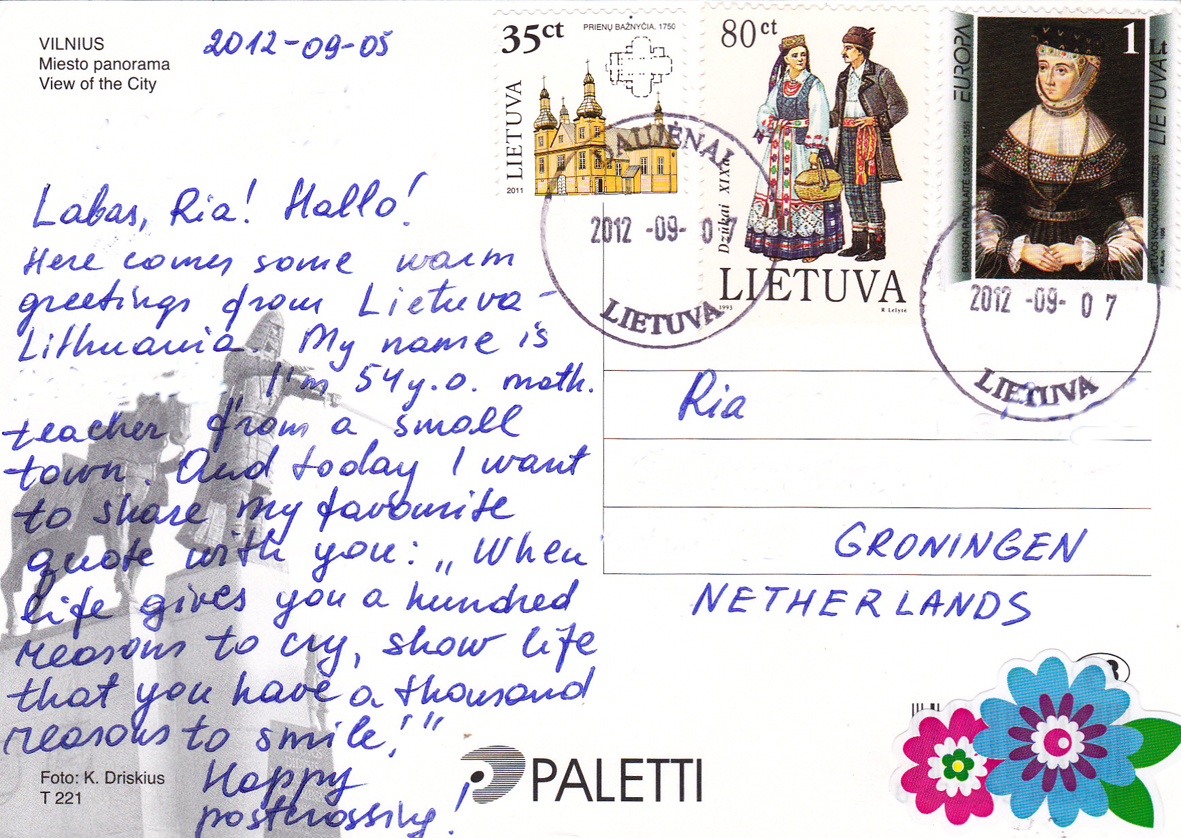 VILNIUS
Miesto panorama
View of the City
2012-09-05
35ct
PRIENŲ BAŽNYČIA. 1750
LIETUVA
2011
80 ct
Dzūkai XIX
LIETUVA
1993
R. Lelytė
EUROPA
1 Lt
LIETUVA
BARBORA RADVILAITĖ
LIETUVOS NACIONALINIS MUZIEJUS
DAUJĖNAI
2012 -09- 07
LIETUVA
2012 -09- 07
LIETUVA
Labas, Ria! Hallo!
Here comes some warm
greetings from Lietuva -
Lithuania. My name is
I'm 54 y.o. math.
teacher from a small
town. And today I want
to share my favourite
quote with you: „When
life gives you a hundred
reasons to cry, show life
that you have a thousand
reasons to smile!"
Happy
postcrossing!
Ria
GRONINGEN
NETHERLANDS
Foto: K. Driskius
T 221
PALETTI